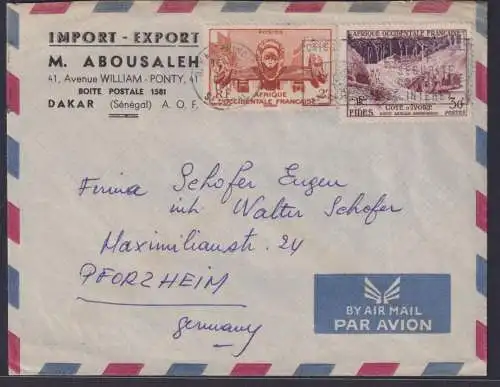 IMPORT - EXPORT
M. ABOUSALEH
41, Avenue WILLIAM - PONTY, 41
BOITE POSTALE 1581
DAKAR (Sénégal) A. O. F.
POSTES
RF 2F
AFRIQUE
OCCIDENTALE FRANÇAISE
AFRIQUE OCCIDENTALE FRANÇAISE
FIDES
COTE D'IVOIRE
POSTES
Firma Schofer Eugen
inh Walter Schofer
Maximilianstr. 24
PFORZHEIM
Germany
BY AIR MAIL
PAR AVION